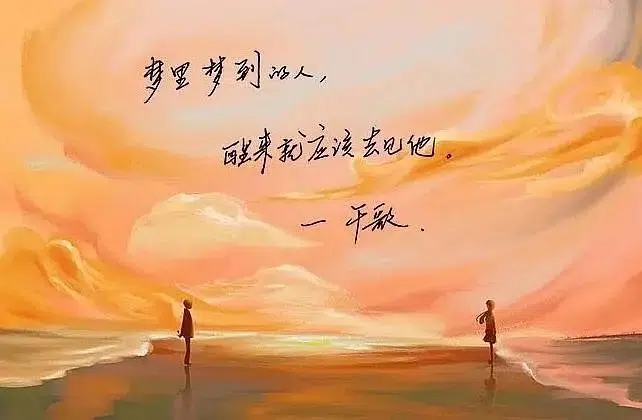 梦里梦到的人，
醒来就应该去见他。
一千歌.